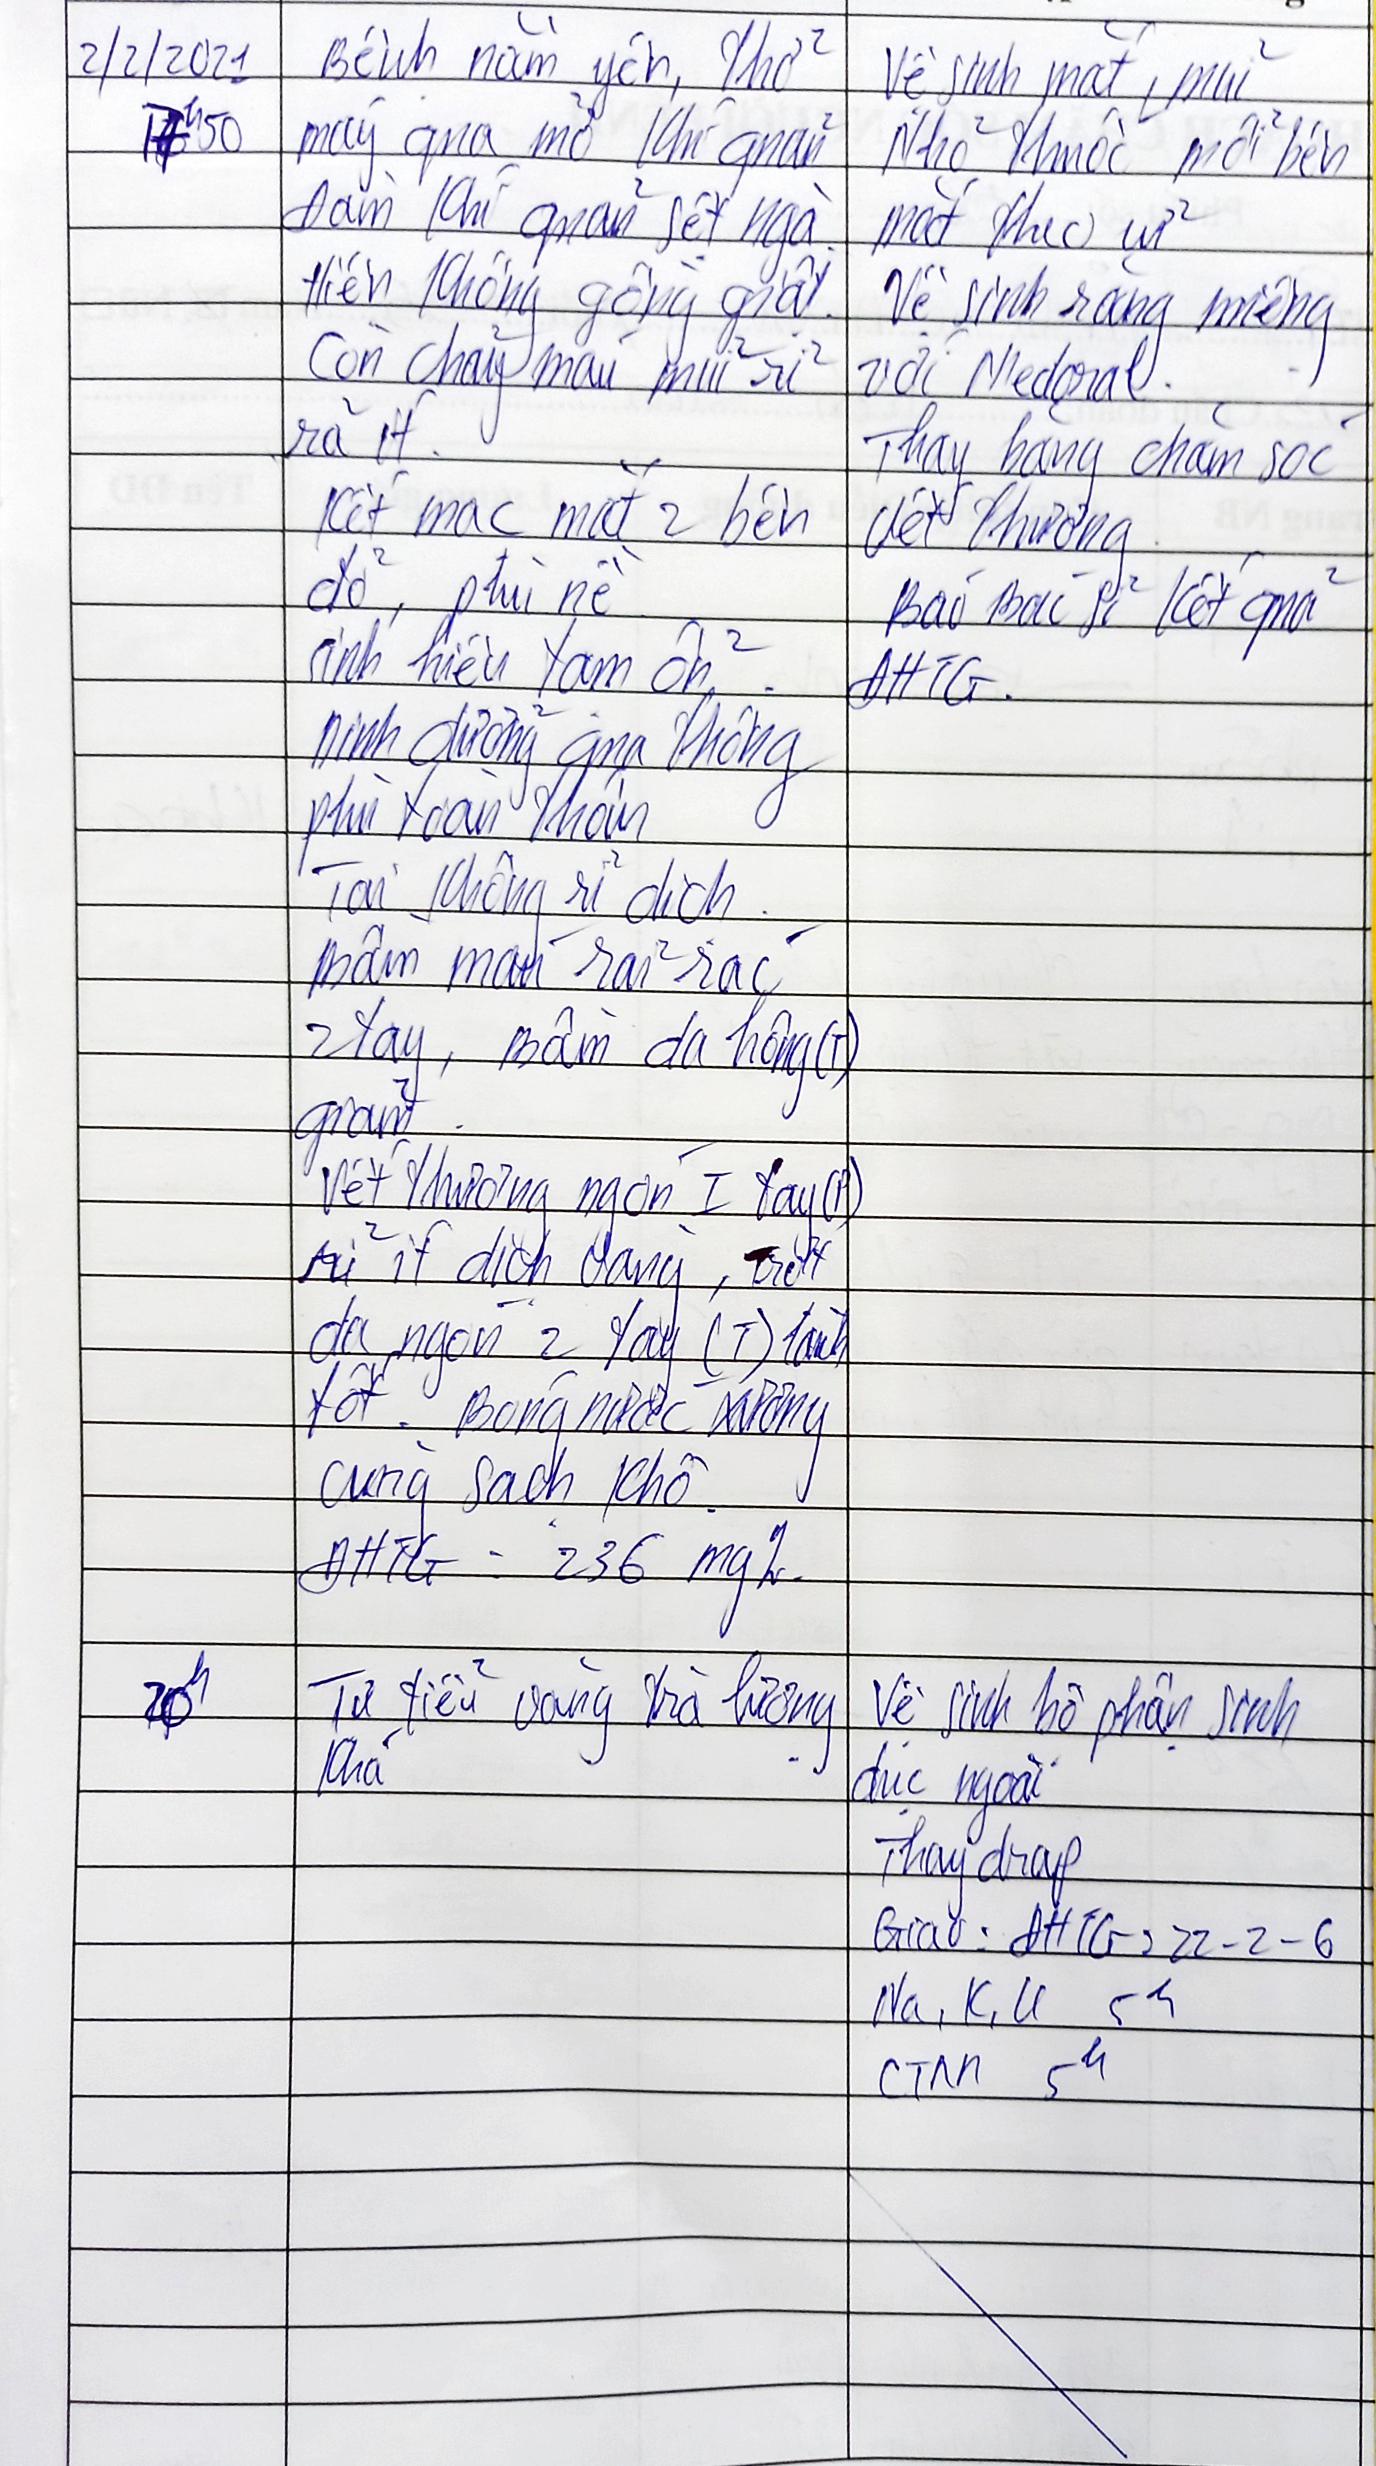 2/2/2021
17h50
Bệnh nằm yên, thở
máy qua mở khí quản
Đàm khí quản sệt ngà.
Hiện không gồng giật.
Còn chảy máu mũi rỉ
rả ít.
Kết mạc mắt 2 bên
đỏ, phù nề.
Sinh hiệu tạm ổn.
Dinh dưỡng qua thông
phù toàn thân
Tai không rỉ dịch.
Bầm máu rải rác
2 tay, Bầm da hông (T)
giảm.
Vết thương ngón I tay (P)
rỉ ít dịch vàng, trợt
da ngón 2 tay (T) lành
tốt. Bóng nước xương
cùng sạch khô.
ĐHTG = 236 mg%.
Vệ sinh mắt, mũi
Nhỏ thuốc mỗi bên
mắt theo
Vệ sinh răng miệng
với Medoral.
Thay băng chăm sóc
vết thương.
Báo Bác sĩ kết quả
ĐHTG.
20h
Tự tiểu vàng trà lượng
khá
Vệ sinh bộ phận sinh
dục ngoài
Thay drap
Giao: ĐHTG: 22-2-6
Na, K, Cl 5h
CTM 5h